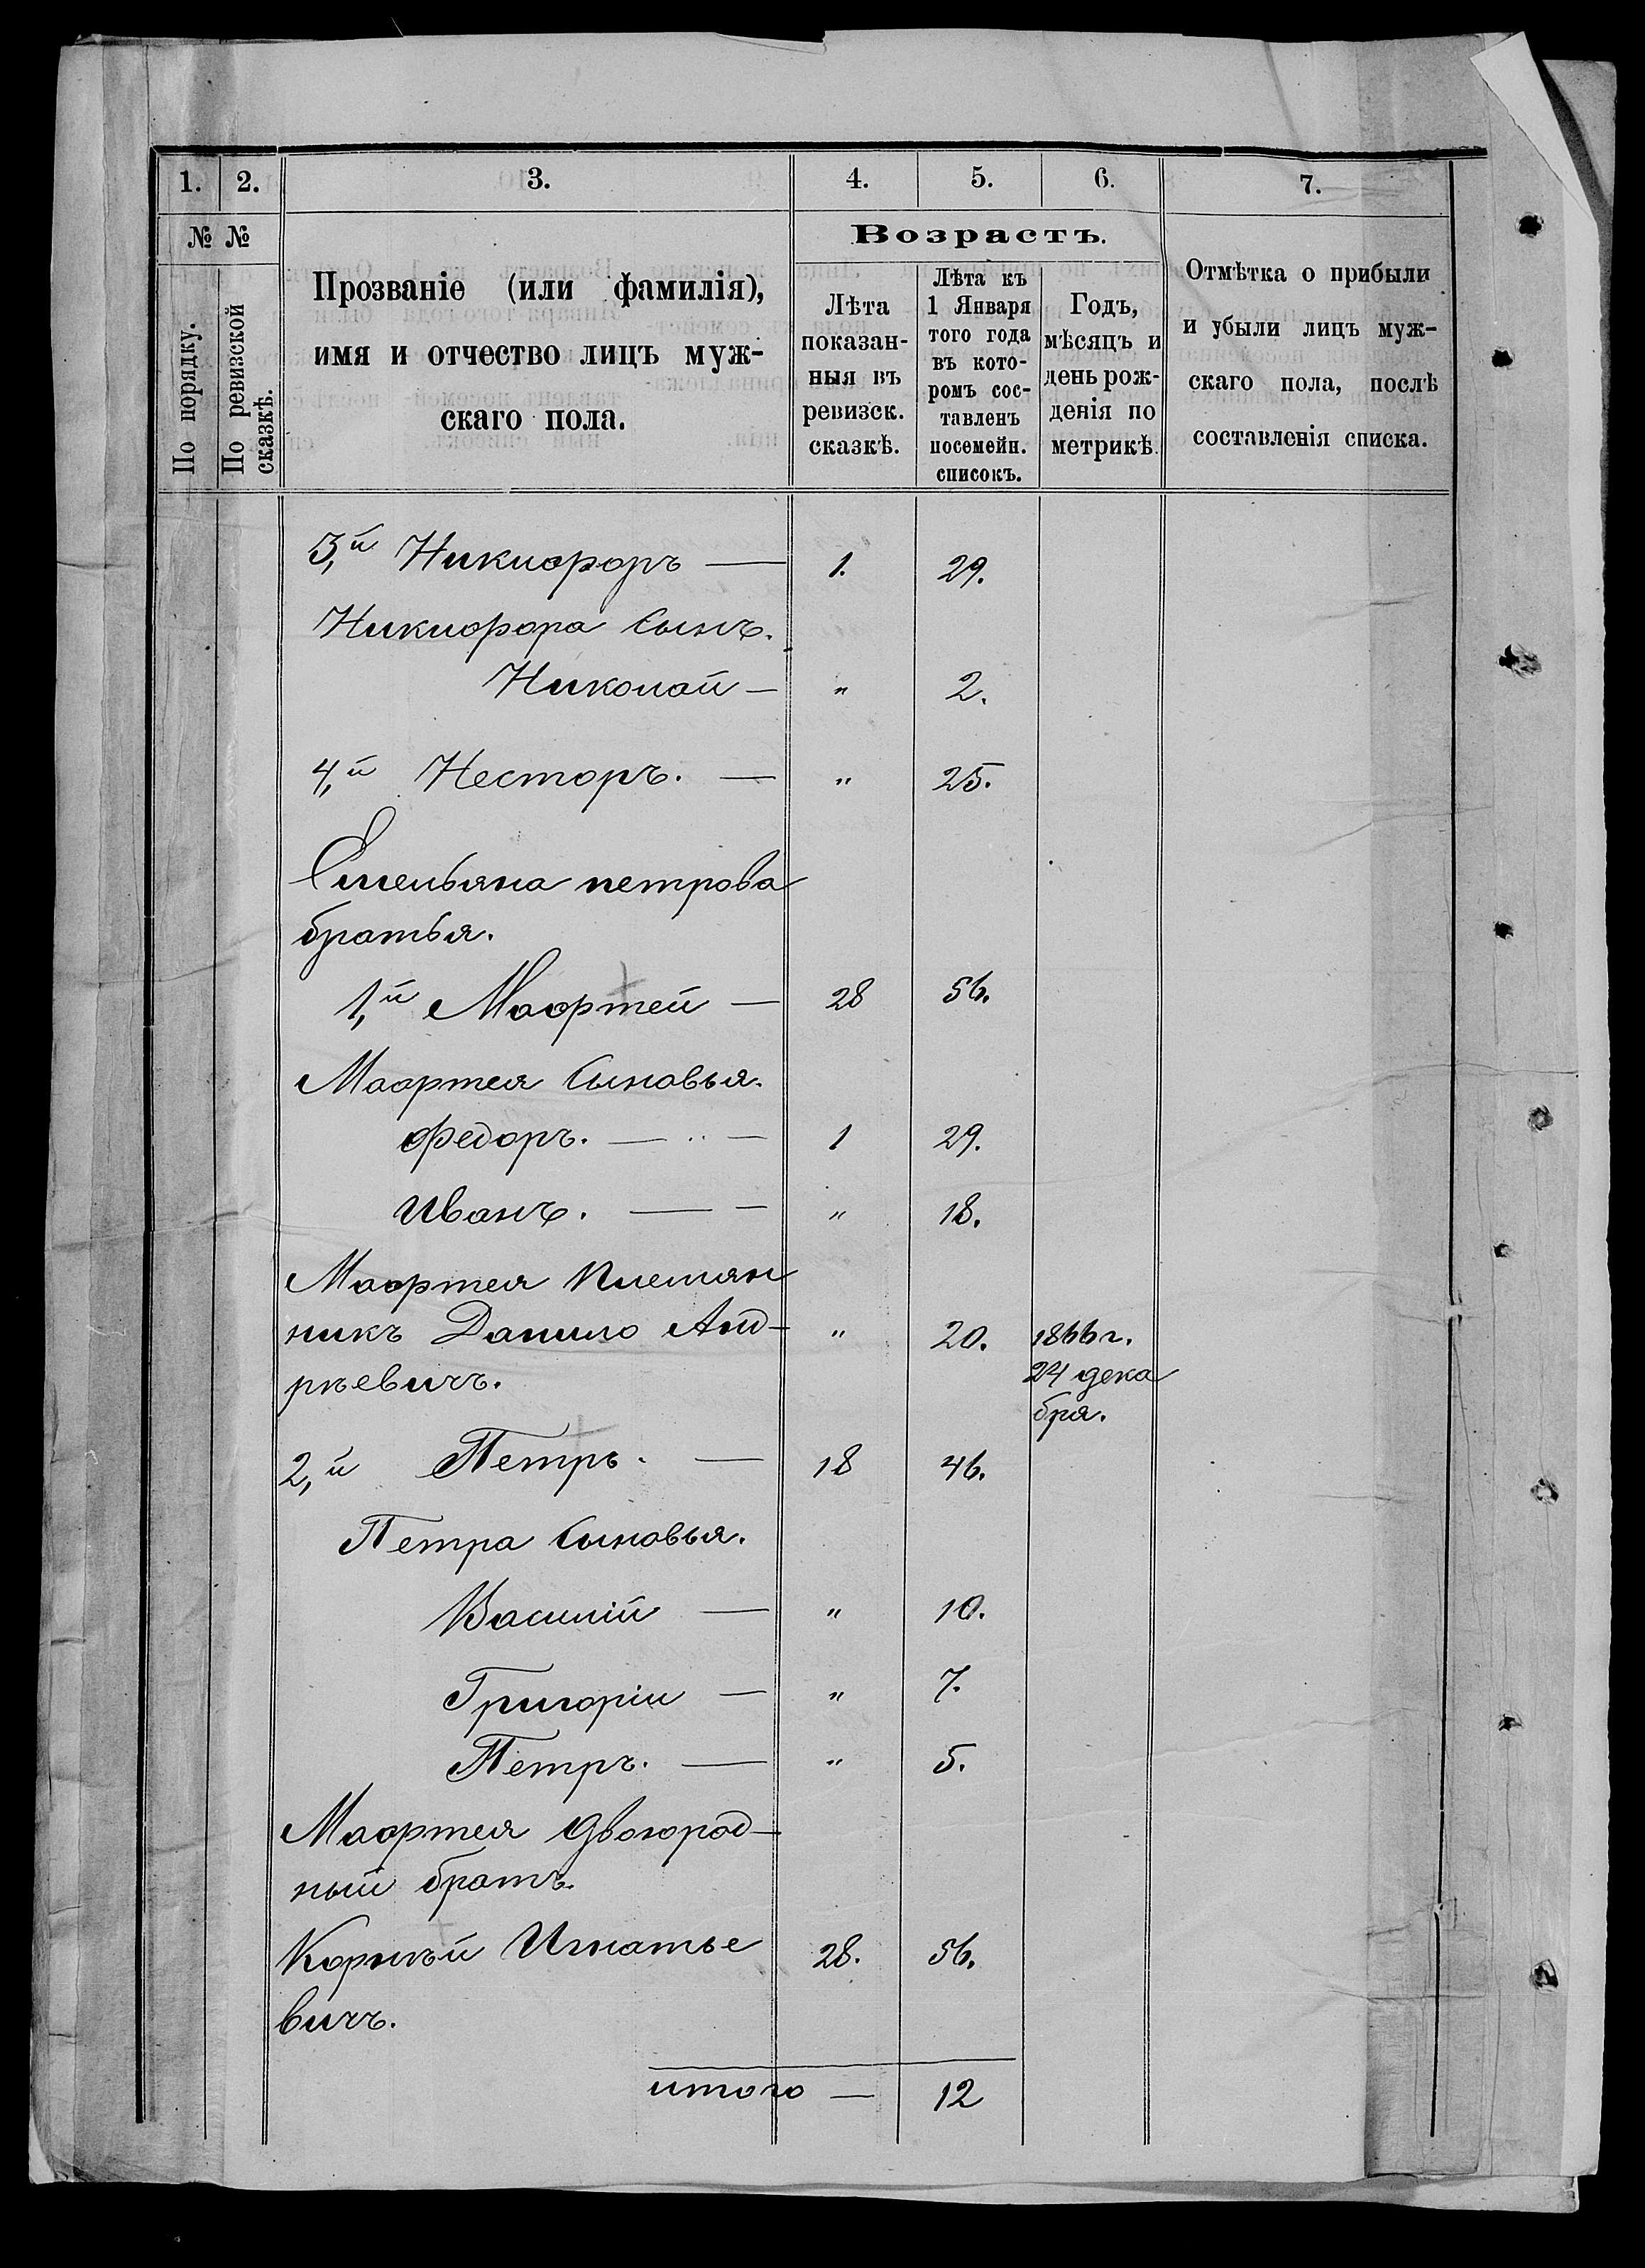 1. 2. 3. 4. 5. 6. 7.
№ №
По порядку.
По ревизской сказкѣ.
Прозваніе (или фамилія),
имя и отчество лицъ муж-
скаго пола.
Возрастъ.
Лѣта
показан-
ныя въ
ревизск.
сказкѣ.
Лѣта къ
1 Января
того года
въ кото-
ромъ сос-
тавленъ
посемейн.
списокъ.
Годъ,
мѣсяцъ и
день рож-
денія по
метрикѣ.
Отмѣтка о прибыли
и убыли лицъ муж-
скаго пола, послѣ
составленія списка.
3,й Никифоръ — 1. 29.
Никифора Сынъ.
Николай — " 2.
4,й Несторъ. — " 25.
Емельяна петрова
братья.
1,й Мафтей — 28 56.
Мафтея Сыновья.
Федоръ. — " — 1 29.
Иванъ. — — " 18.
Мафтея Племян
никъ Данило Анд- " 20. 1866 г.
рѣевичъ. 24 дека
бря.
2,й Петръ. — 18 46.
Петра Сыновья.
Василій — " 10.
Григоріи — " 7.
Петръ. — " 5.
Мафтея двоюрод-
ный братъ.
Корнѣй Игнатье 28. 56.
вичъ.
итого — 12